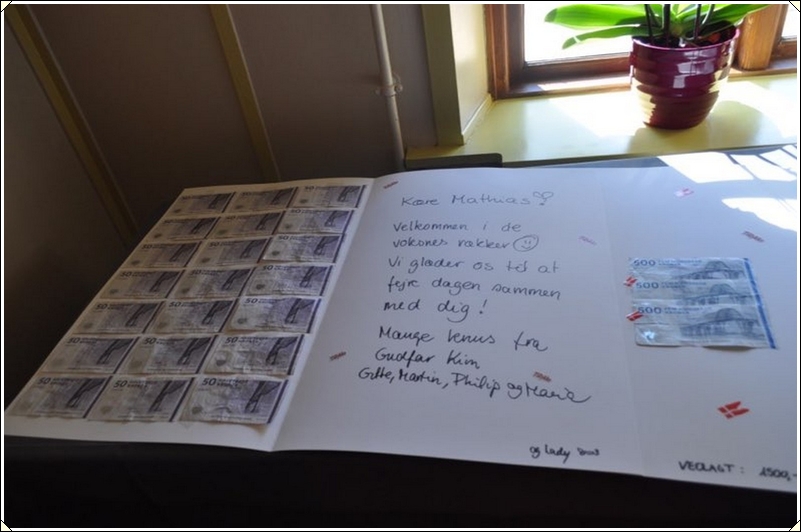 50 50 50
50 50 50
50 50 50
50 50 50
50 50 50
50 50 50
50 50 50
Kære Mathias
Velkommen i de
voksnes rækker
Vi glæder os til at
fejre dagen sammen
med dig!
Mange fra
Gudfar Kim
Gitte, Martin, Philip og Maria
og Lady
500
500
500
VEDLAGT: 1500,-